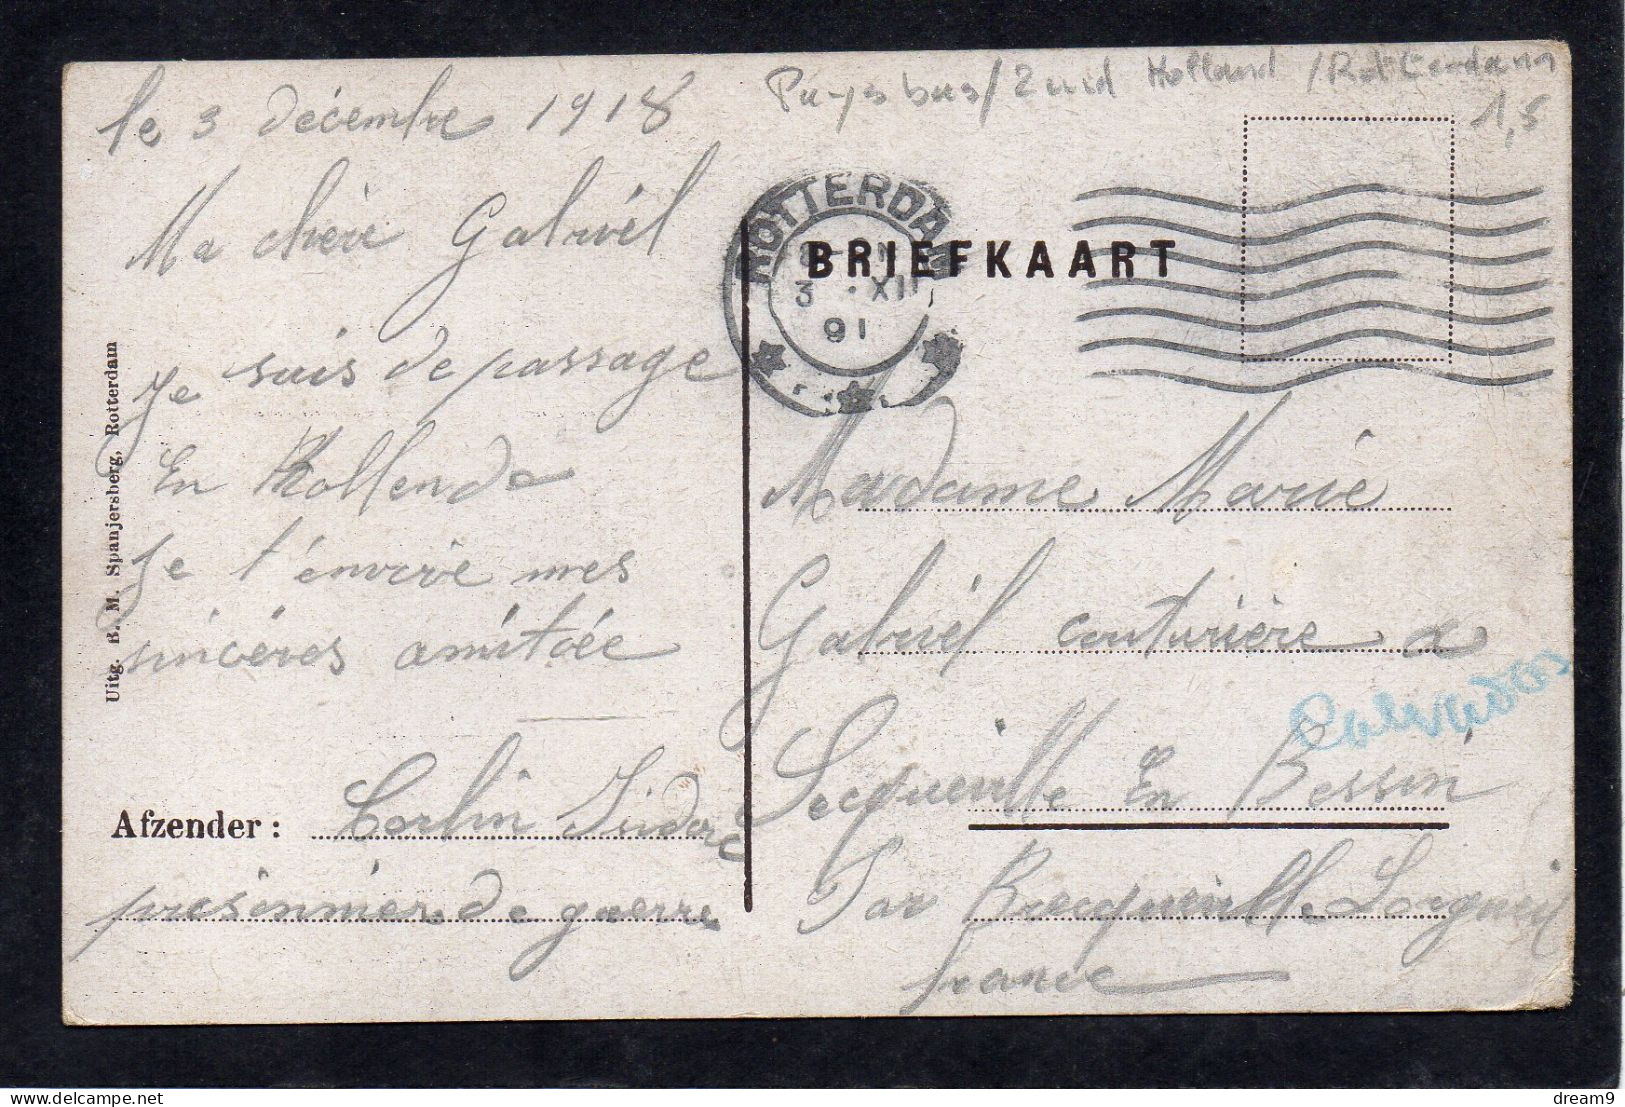 Pays bas / Zuid Holland / Rotterdam
1,5
le 3 décembre 1918
Ma chère Gabriél
Je suis de passage
En Hollende
Je t'envoie mes
sincéres amitiée
Afzender : Corlin Isidore
prisonnier de guerre
Uitg. B. M. Spanjersberg, Rotterdam
ROTTERDAM
3 · XII
91
BRIEFKAART
Madame Marie
Gabriél couturière a
Secqueville En Bessin
Calvados
Par Brecqueville Lorgueil
france
dream9